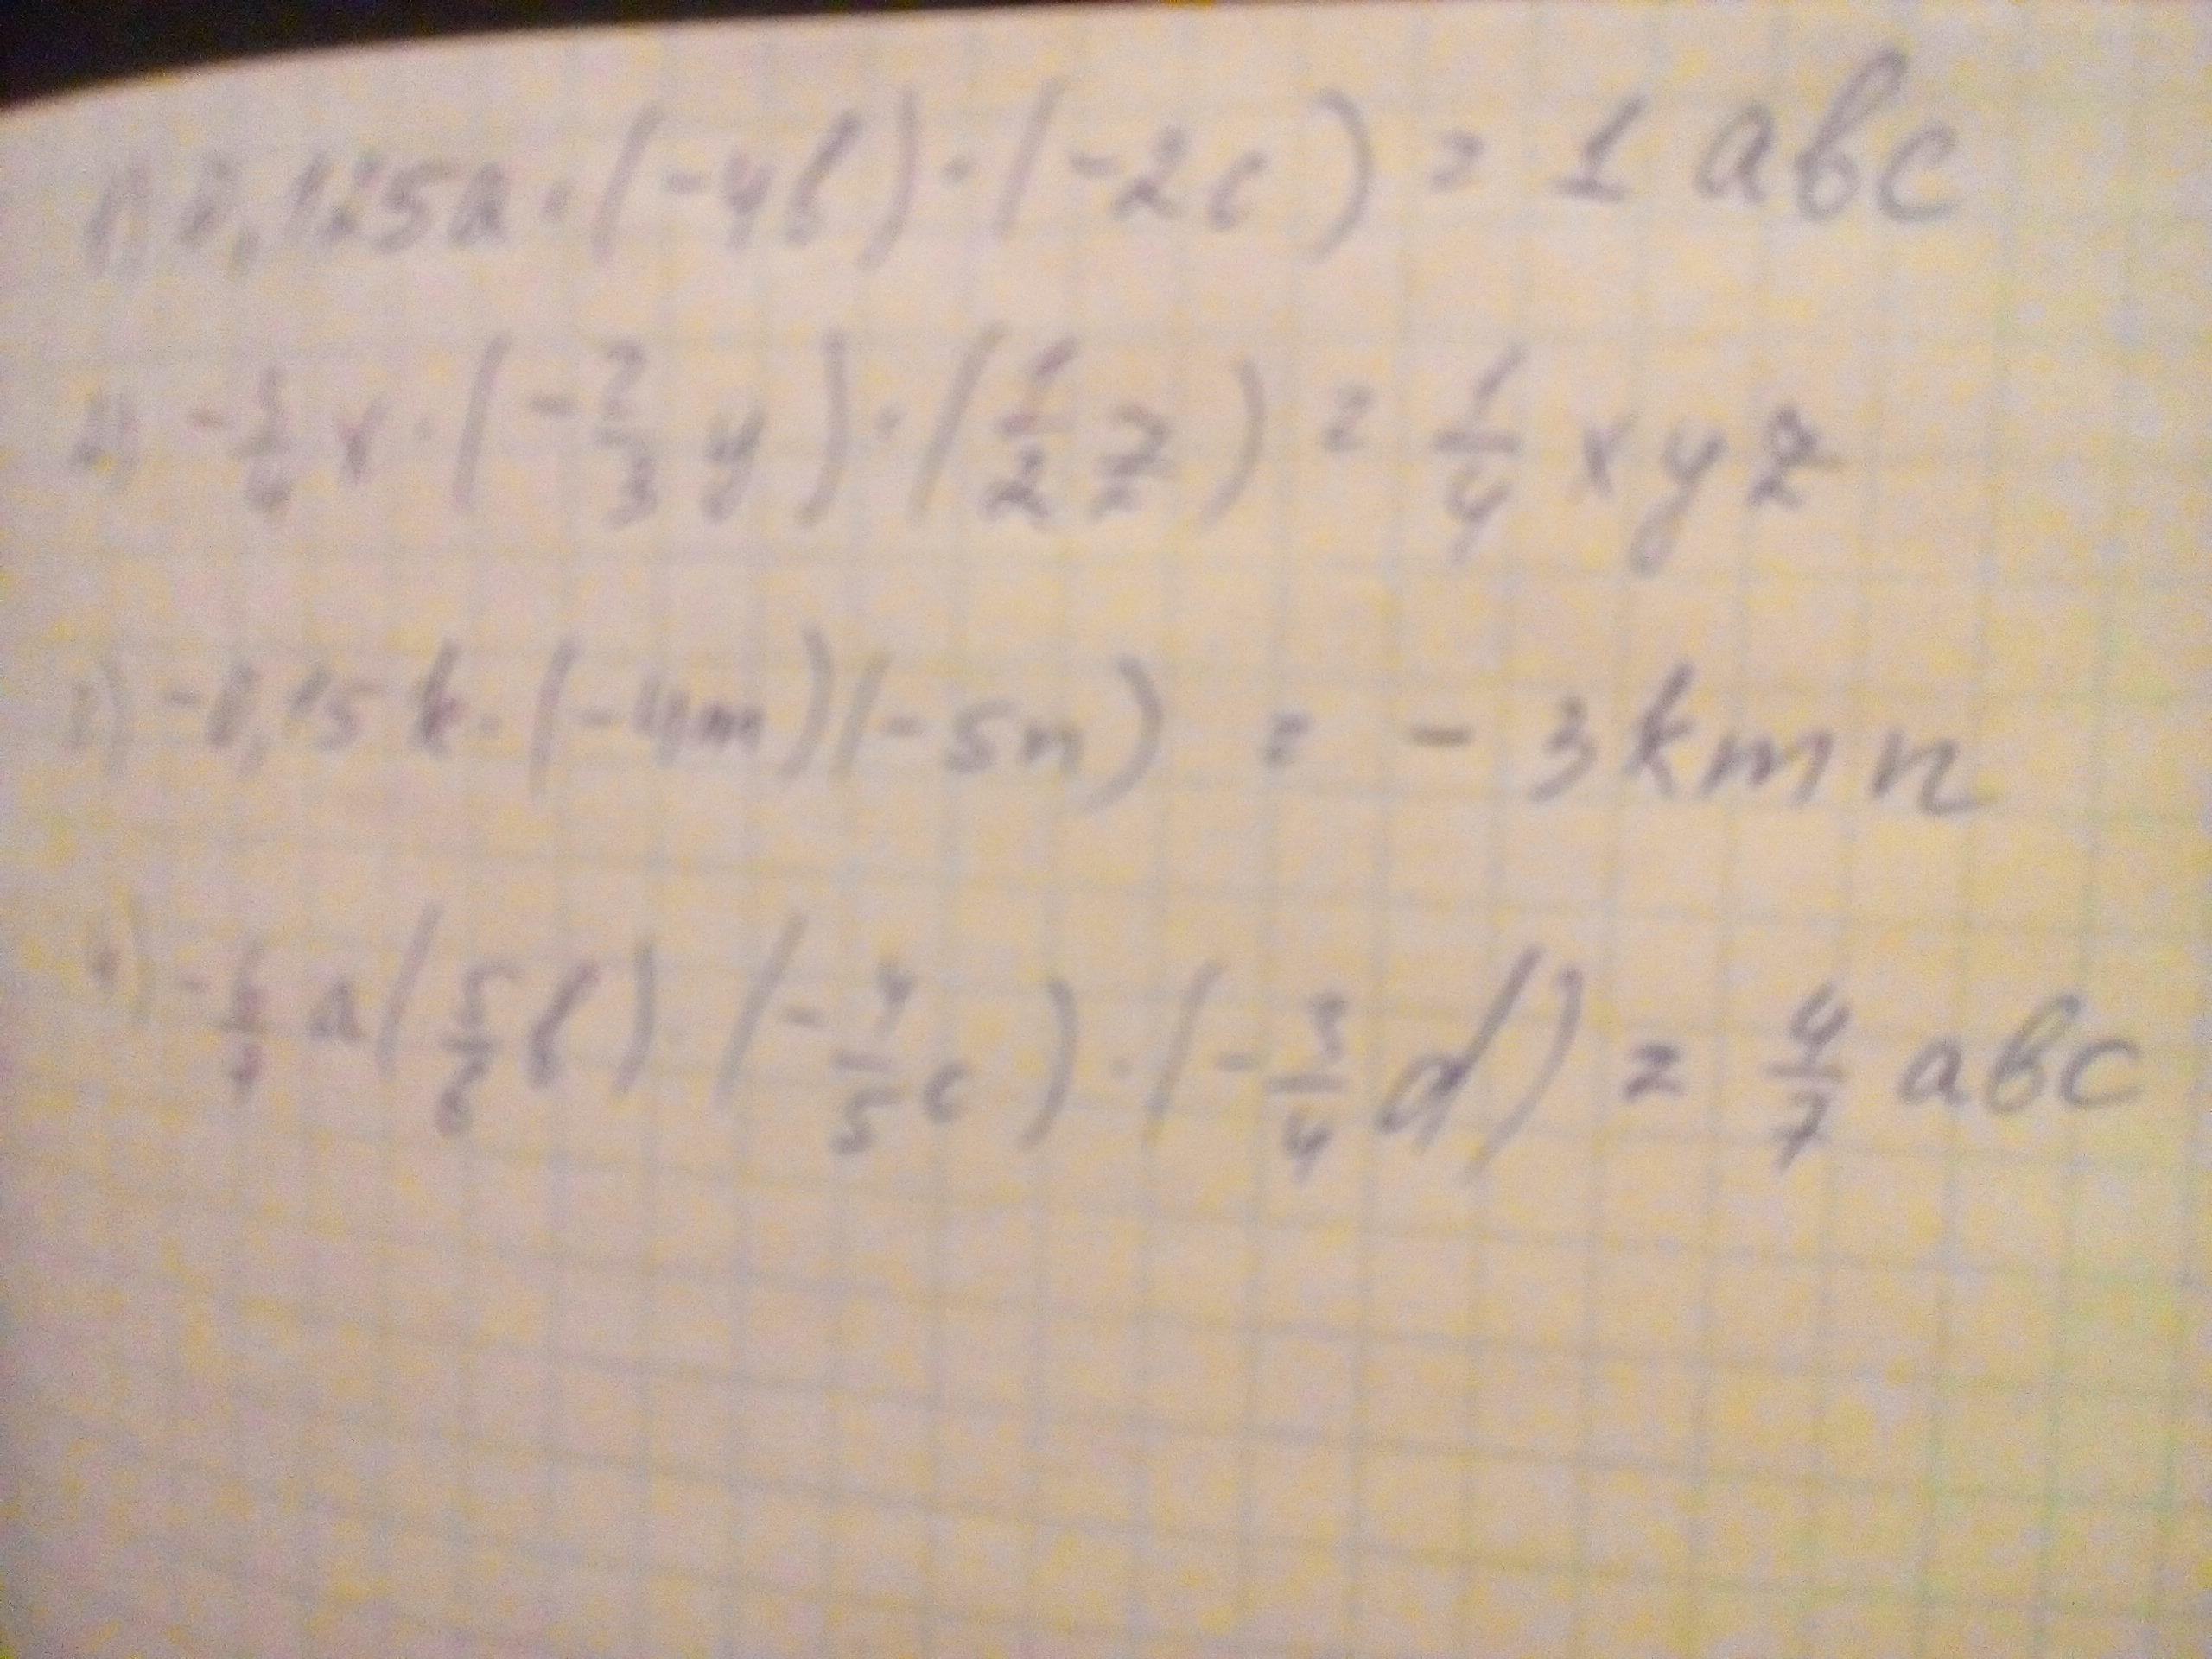 1) 0,125a · (-4b) · (-2c) = 1 abc
2) -3/4 x · (-2/3 y) · (1/2 z) = 1/4 xyz
3) -0,15k · (-4m)(-5n) = - 3kmn
4) -6/7 a(5/6 b) · (-4/5 c) · (-3/4 d) = 4/7 abc